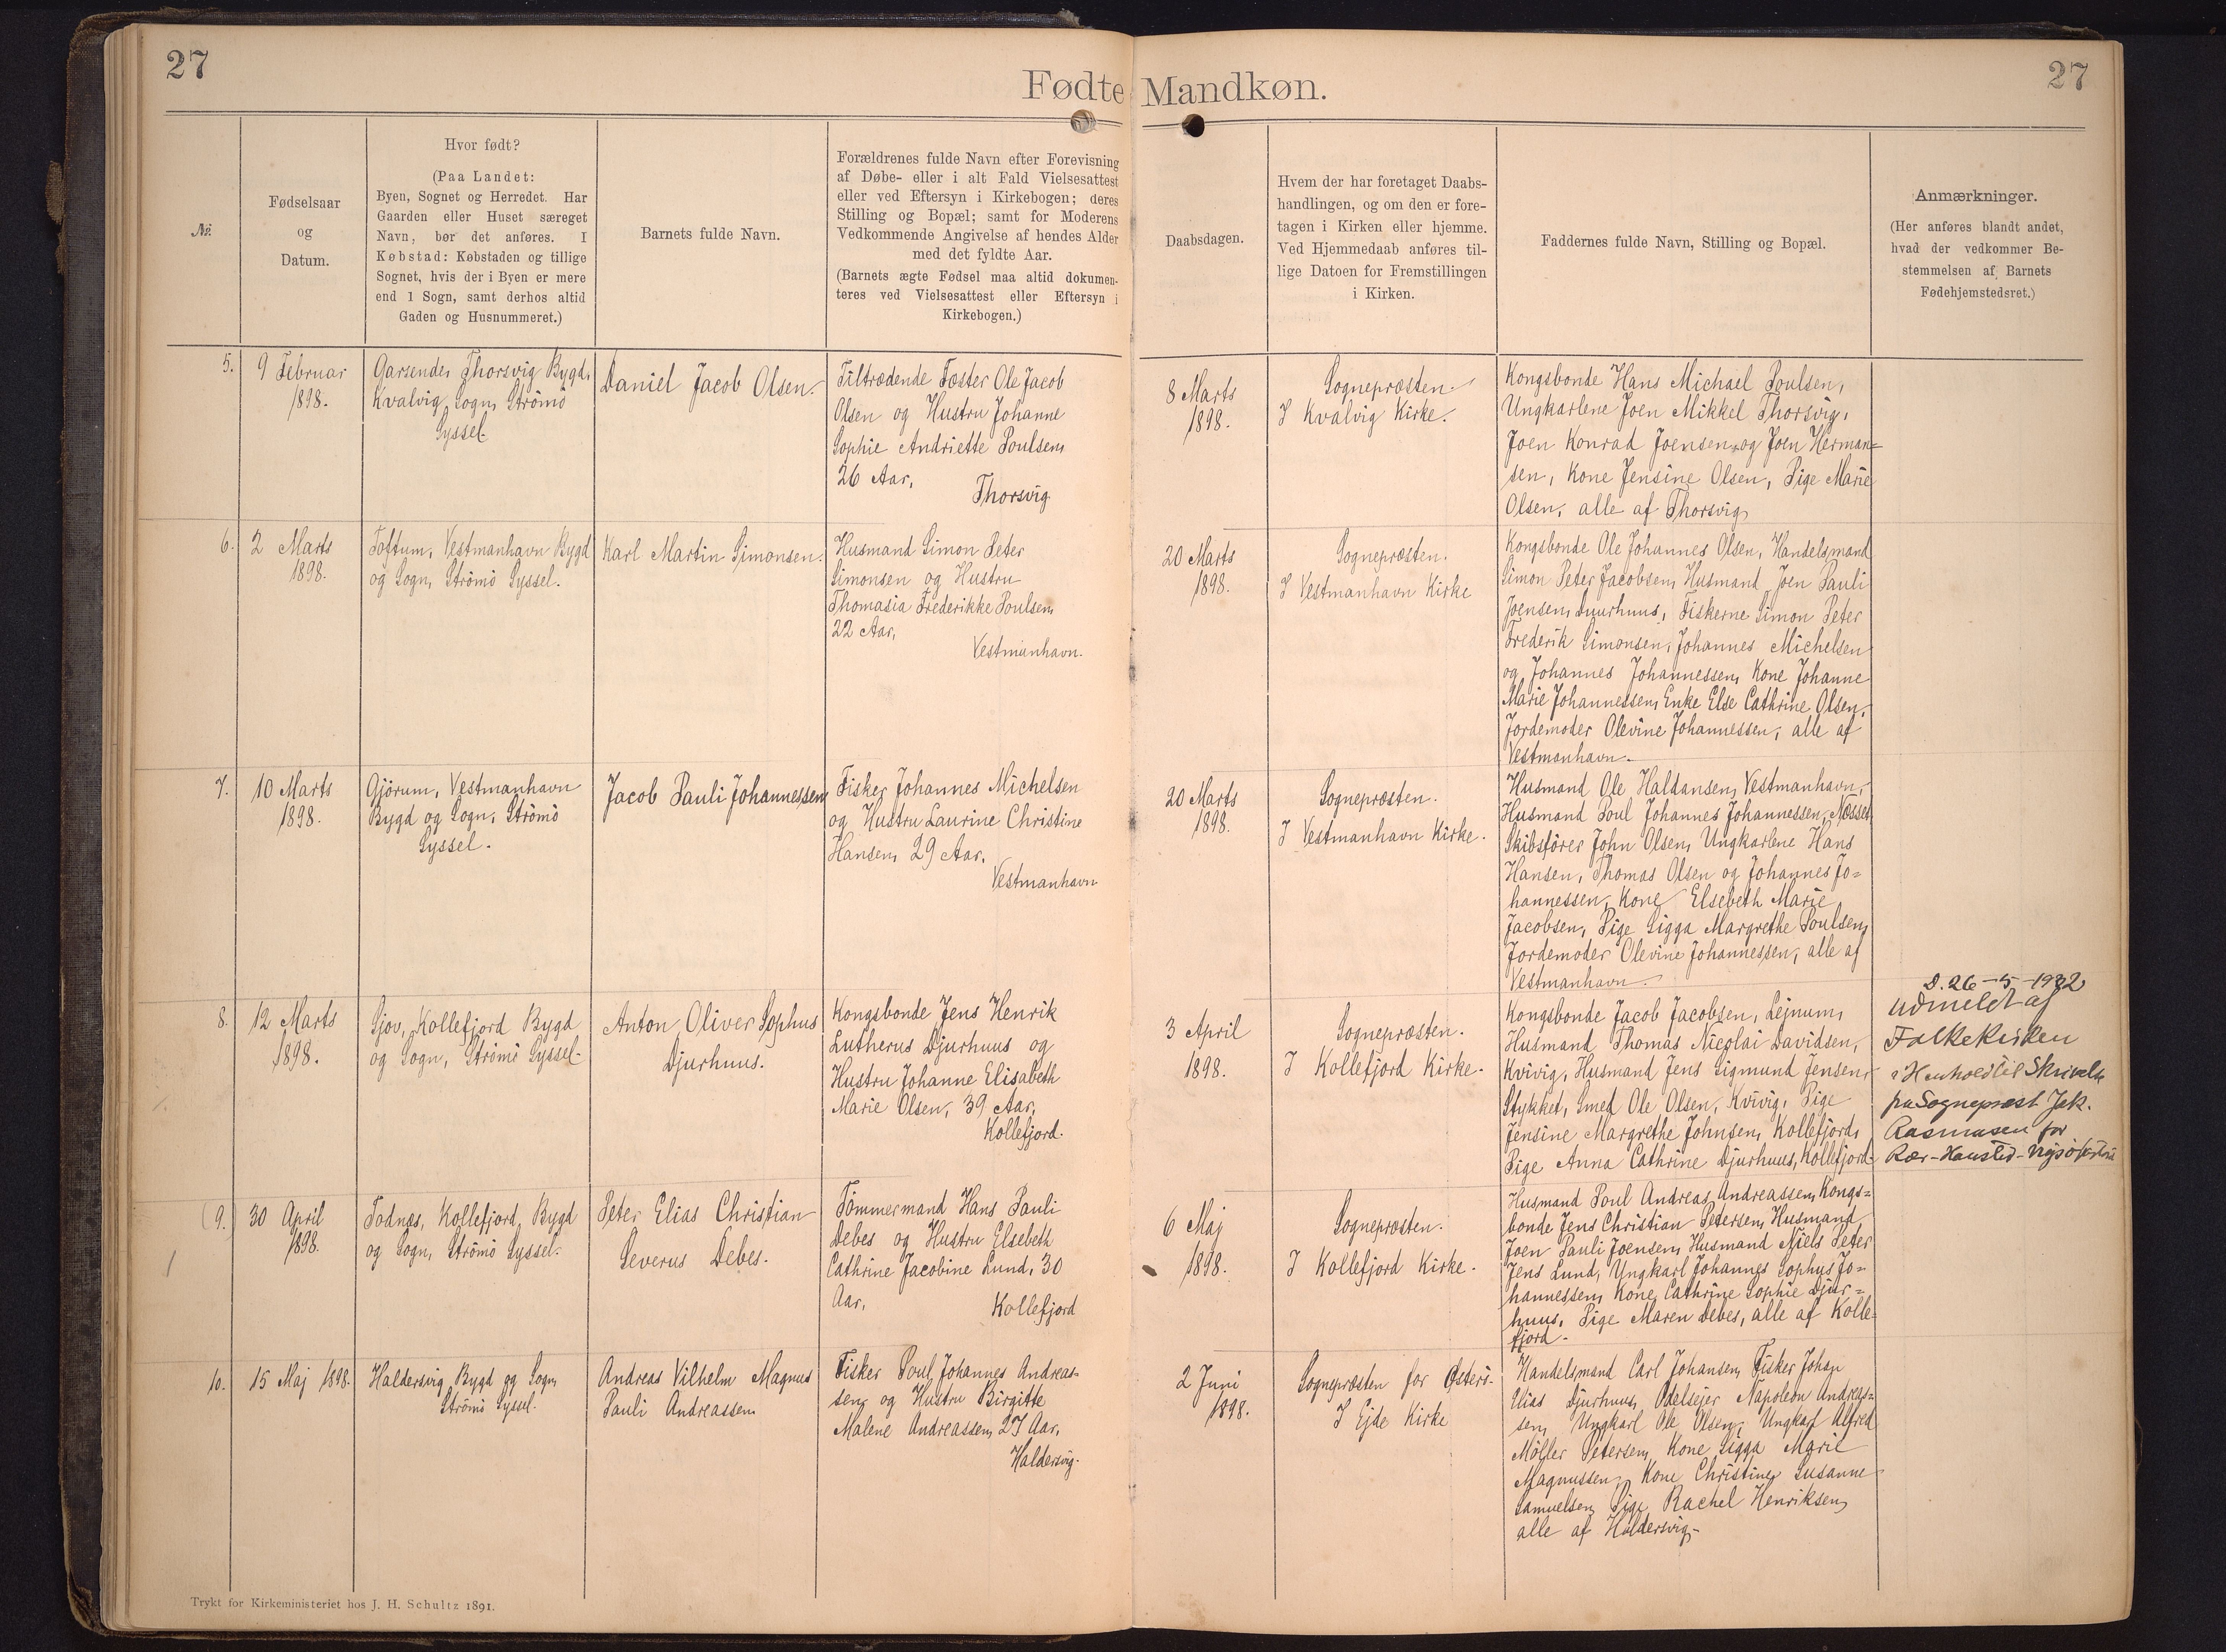 27
27
Fødte Mandkøn.
No.
Fødselsaar
og
Datum.
Hvor født?
(Paa Landet:
Byen, Sognet og Herredet. Har
Gaarden eller Huset særeget
Navn, bør det anføres. I
Købstad: Købstaden og tillige
Sognet, hvis der i Byen er mere
end 1 Sogn, samt derhos altid
Gaden og Husnummeret.)
Barnets fulde Navn.
Forældrenes fulde Navn efter Forevisning
af Døbe- eller i alt Fald Vielsesattest
eller ved Eftersyn i Kirkebogen; deres
Stilling og Bopæl; samt for Moderens
Vedkommende Angivelse af hendes Alder
med det fyldte Aar.
(Barnets ægte Fødsel maa altid dokumen-
teres ved Vielsesattest eller Eftersyn i
Kirkebogen.)
Daabsdagen.
Hvem der har foretaget Daabs-
handlingen, og om den er fore-
tagen i Kirken eller hjemme.
Ved Hjemmedaab anføres til-
lige Datoen for Fremstillingen
i Kirken.
Faddernes fulde Navn, Stilling og Bopæl.
Anmærkninger.
(Her anføres blandt andet,
hvad der vedkommer Be-
stemmelsen af Barnets
Fødehjemstedsret.)
5.
9 Februar
1898.
Garsende, Thorsvig Bygd,
Kvalvig Sogn, Strömö
Syssel
Daniel Jacob Olsen.
Tiltrædende Fæster Ole Jacob
Olsen og Hustru Johanne
Sophie Andriette Poulsen,
26 Aar,
Thorsvig
8 Marts
1898.
Sognepræsten.
I Kvalvig Kirke.
Kongsbonde Hans Michael Poulsen,
Ungkarlene Joen Mikkel Thorsvig,
Joen Konrad Joensen og Joen Herman=
sen, Kone Jensine Olsen, Pige Marie
Olsen, alle af Thorsvig
6.
2 Marts
1898.
Toftum, Vestmanhavn Bygd
og Sogn, Strömö Syssel.
Karl Martin Simonsen.
Husmand Simon Peter
Simonsen og Hustru
Thomasia Frederikke Poulsen,
22 Aar,
Vestmanhavn.
20 Marts
1898.
Sognepræsten.
I Vestmanhavn Kirke
Kongsbonde Ole Johannes Olsen, Handelsmand
Simon Peter Jacobsen, Husmand Joen Pauli
Joensen, Duurhuus, Fiskerne Simon Peter
Frederik Simonsen, Johannes Michelsen
og Johannes Johannessen, Kone Johanne
Marie Johannessen, Enke Else Cathrine Olsen,
Jordemoder Olevine Johannessen, alle af
Vestmanhavn.
7.
10 Marts
1898.
Gjörum, Vestmanhavn
Bygd og Sogn, Strömö
Syssel.
Jacob Pauli Johannessen
Fisker Johannes Michelsen
og Hustru Laurine Christine
Hansen, 29 Aar,
Vestmanhavn
20 Marts
1898.
Sognepræsten.
I Vestmanhavn Kirke.
Husmand Ole Haldansen, Vestmanhavn,
Husmand Poul Johannes Johannessen, Næsset,
Skibsförer John Olsen, Ungkarlene Hans
Hansen, Thomas Olsen og Johannes Jo=
hannessen, Kone Elsebeth Marie
Jacobsen, Pige Sigga Margrethe Poulsen,
Jordemoder Olevine Johannessen, alle af
Vestmanhavn.
8.
12 Marts
1898.
Sjov, Kollefjord Bygd
og Sogn, Strömö Syssel.
Anton Oliver Sophus
Djurhuus.
Kongsbonde Jens Henrik
Lutherus Djurhuus og
Hustru Johanne Elisabeth
Marie Olsen, 39 Aar,
Kollefjord.
3 April
1898.
Sognepræsten.
I Kollefjord Kirke.
Kongsbonde Jacob Jacobsen, Lejnum,
Husmand Thomas Nicolai Davidsen,
Kvivig, Husmand Jens Sigmund Jensen,
Stykket, Smed Ole Olsen, Kvivig, Pige
Jensine Margrethe Johnsen, Kollefjord,
Pige Anna Cathrine Djurhuus, Kollefjord.
D. 26-5-1932
udmeldt af
Folkekirken
i Henhold til Skrivelse
fra Sognepræst Jak.
Rasmusen for
Rær-Hansted-
(9.
30 April
1898.
Todnæs, Kollefjord Bygd
og Sogn, Strömö Syssel.
Peter Elias Christian
Severus Debes.
Tömmermand Hans Pauli
Debes og Hustru Elsebeth
Cathrine Jacobine Lund, 30
Aar,
Kollefjord
6 Maj
1898.
Sognepræsten.
I Kollefjord Kirke.
Husmand Poul Andreas Andreassen, Kongs=
bonde Jens Christian Petersen, Husmand
Joen Pauli Joensen, Husmand Niels Peter
Jens Lund, Ungkarl Johannes Sophus Jo=
hannessen, Kone Cathrine Sophie Djur=
huus, Pige Maren Debes, alle af Kolle=
fjord.
10.
15 Maj 1898.
Haldersvig Bygd og Sogn,
Strömö Syssel.
Andreas Vilhelm Magnus
Pauli Andreassen
Fisker Poul Johannes Andreas-
sen og Hustru Birgitte
Malene Andreassen, 27 Aar,
Haldersvig.
2 Juni
1898.
Sognepræsten for Østerö.
I Ejde Kirke
Handelsmand Carl Johansen, Fisker Johan
Elias Djurhuus, Odelsejer Napoleon Andreas=
sen, Ungkarl Ole Olsen, Ungkarl Alfred
Möller Petersen, Kone Sigga Marie
Magnussen, Kone Christine Susanne
Samuelsen, Pige Rachel Henriksen,
alle af Haldersvig.
Trykt for Kirkeministeriet hos J. H. Schultz 1891.